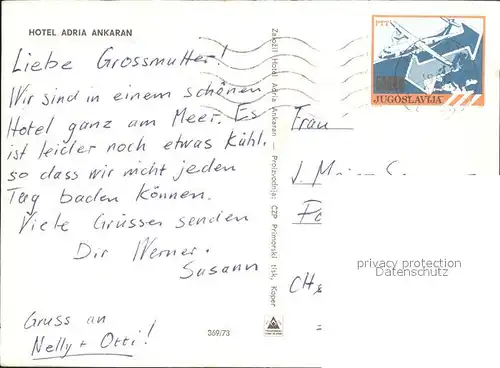 HOTEL ADRIA ANKARAN
Liebe Grossmutter!
Wir sind in einem schönen
Hotel ganz am Meer. Es
ist leider noch etwas kühl,
so dass wir nicht jeden
Tag baden können.
Viele Grüsse senden
Dir Werner.
Susann
Gruss an
Nelly + Otti!
369/73
Založil Hotel Adria Ankaran — Proizvodnja: ČZP Primorski tisk, Koper
PTT
JUGOSLAVIJA
Frau
J.
CH
privacy protection
Datenschutz